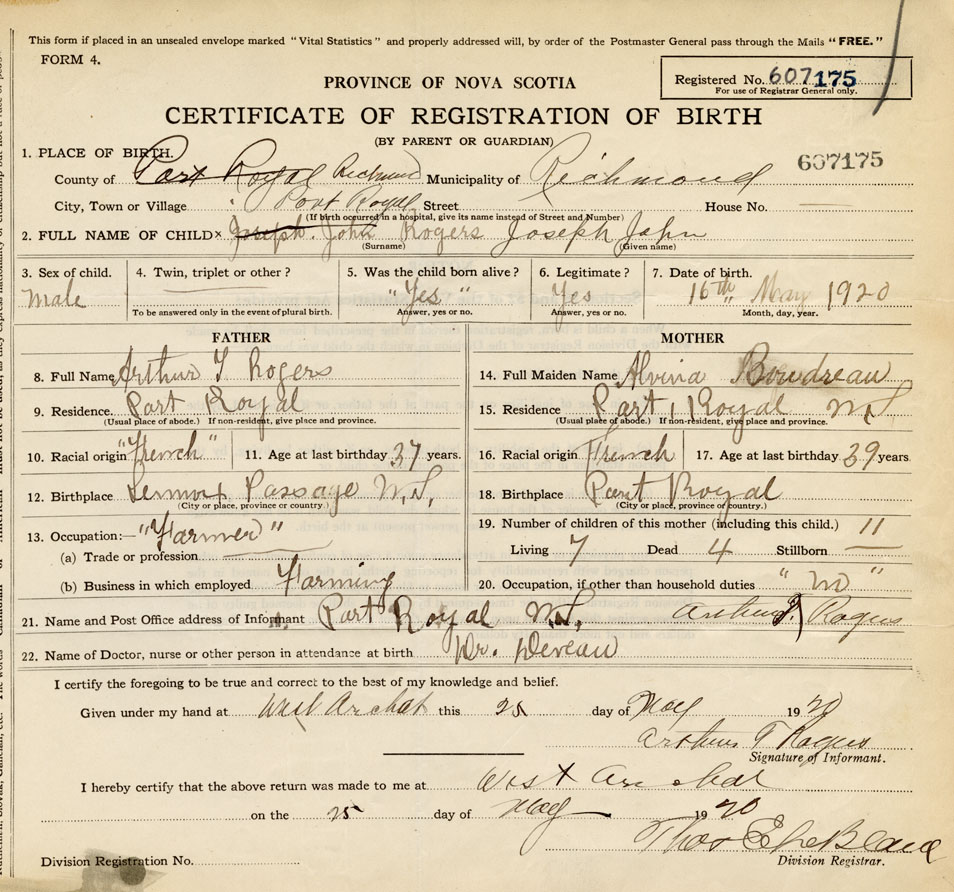 This form if placed in an unsealed envelope marked "Vital Statistics" and properly addressed will, by order of the Postmaster General pass through the Mails "FREE."
FORM 4.
Registered No. 607175
For use of Registrar General only.
PROVINCE OF NOVA SCOTIA
CERTIFICATE OF REGISTRATION OF BIRTH
(BY PARENT OR GUARDIAN)
607175
1. PLACE OF BIRTH.
County of Port Royal Richmond Municipality of Richmond
City, Town or Village Port Royal Street House No.
(If birth occurred in a hospital, give its name instead of Street and Number)
2. FULL NAME OF CHILD× Joseph. John Rogers Joseph John
(Surname) (Given name)
3. Sex of child. 4. Twin, triplet or other? 5. Was the child born alive? 6. Legitimate? 7. Date of birth.
Male "Yes" Yes 16th May 1920
To be answered only in the event of plural birth. Answer, yes or no. Answer, yes or no. Month, day, year.
FATHER MOTHER
8. Full Name Arthur T Rogers 14. Full Maiden Name Alvina Boudreau
9. Residence. Port Royal 15. Residence Port Royal N.S.
(Usual place of abode.) If non-resident, give place and province. (Usual place of abode.) If non-resident, give place and province.
10. Racial origin "French" 11. Age at last birthday 37 years. 16. Racial origin French 17. Age at last birthday 39 years
12. Birthplace Lennox Passage N.S. 18. Birthplace Port Royal
(City or place, province or country.) (City or place, province or country.)
13. Occupation:— "Farmer" 19. Number of children of this mother (including this child.) 11
(a) Trade or profession Living 7 Dead 4 Stillborn —
(b) Business in which employed Farming 20. Occupation, if other than household duties "no"
21. Name and Post Office address of Informant Port Royal N.S. Arthur T. Rogers
22. Name of Doctor, nurse or other person in attendance at birth Dr. Deveau
I certify the foregoing to be true and correct to the best of my knowledge and belief.
Given under my hand at West Arichat this 25 day of May 1920
Arthur T Rogers
Signature of Informant.
I hereby certify that the above return was made to me at West Arichat
on the 25 day of May 1920
Thos LeBlanc
Division Registration No. Division Registrar.